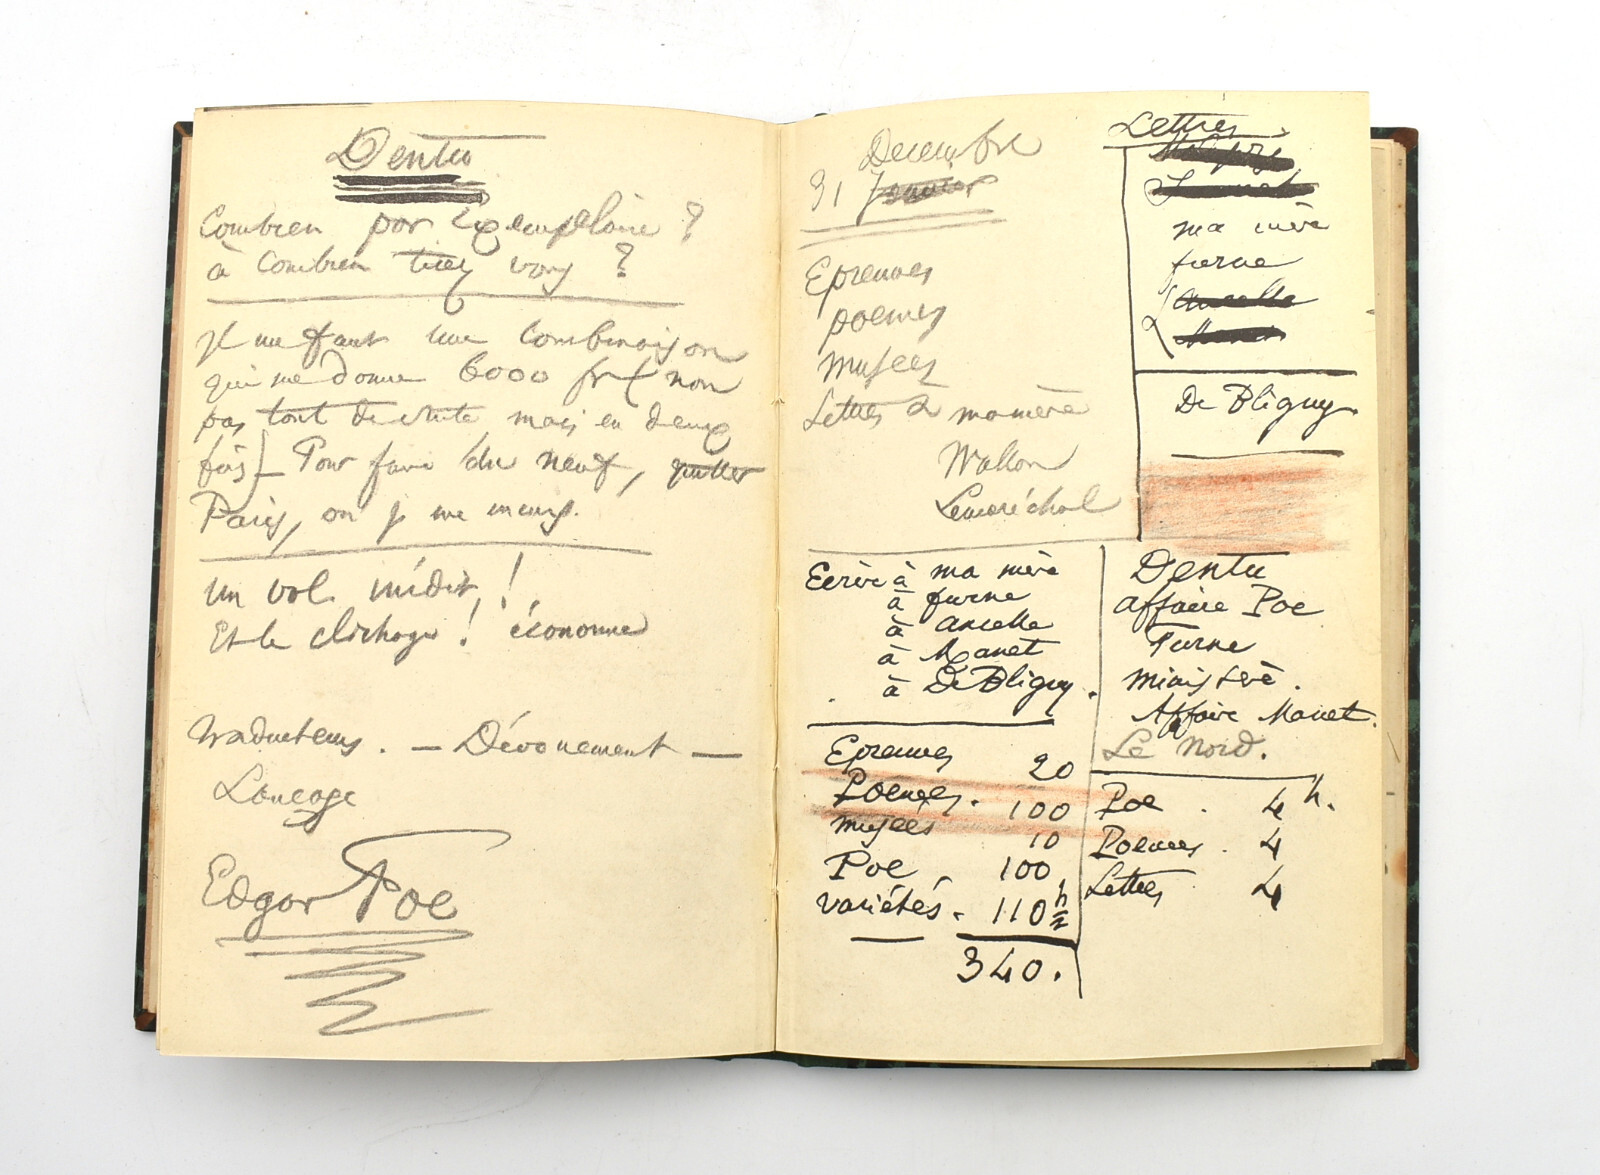 Dentu
Combien par Exemplaire ?
à Combien tirez vous ?
Il me faut une Combinaison
qui me donne 6000 fr (non
pas tout de suite mais en deux
fois) – Pour faire du neuf, quitter
Paris, ou je me meurs.
un vol. inédit, !
Et le clichage ! économie
Traducteurs . — Dévouement —
Langage
Edgar Poe
Decembre
31 Janvier
Epreuves
poemes
musees
Lettres à ma mère
Wallon
Lemaréchal
Lettres.
ma mère
furne
Ancelle
Manet
De Bligny.
Ecrire à ma mère
à furne
à ancelle
à Manet
à De Bligny.
Epreuves 20
Poemes. 100
musees 10
Poe. 100
variétés. 110 h
340.
Dentu
affaire Poe
Furne
ministère.
Affaire Manet.
Le Nord.
Poe . 4 h.
Poemes . 4
Lettres 4